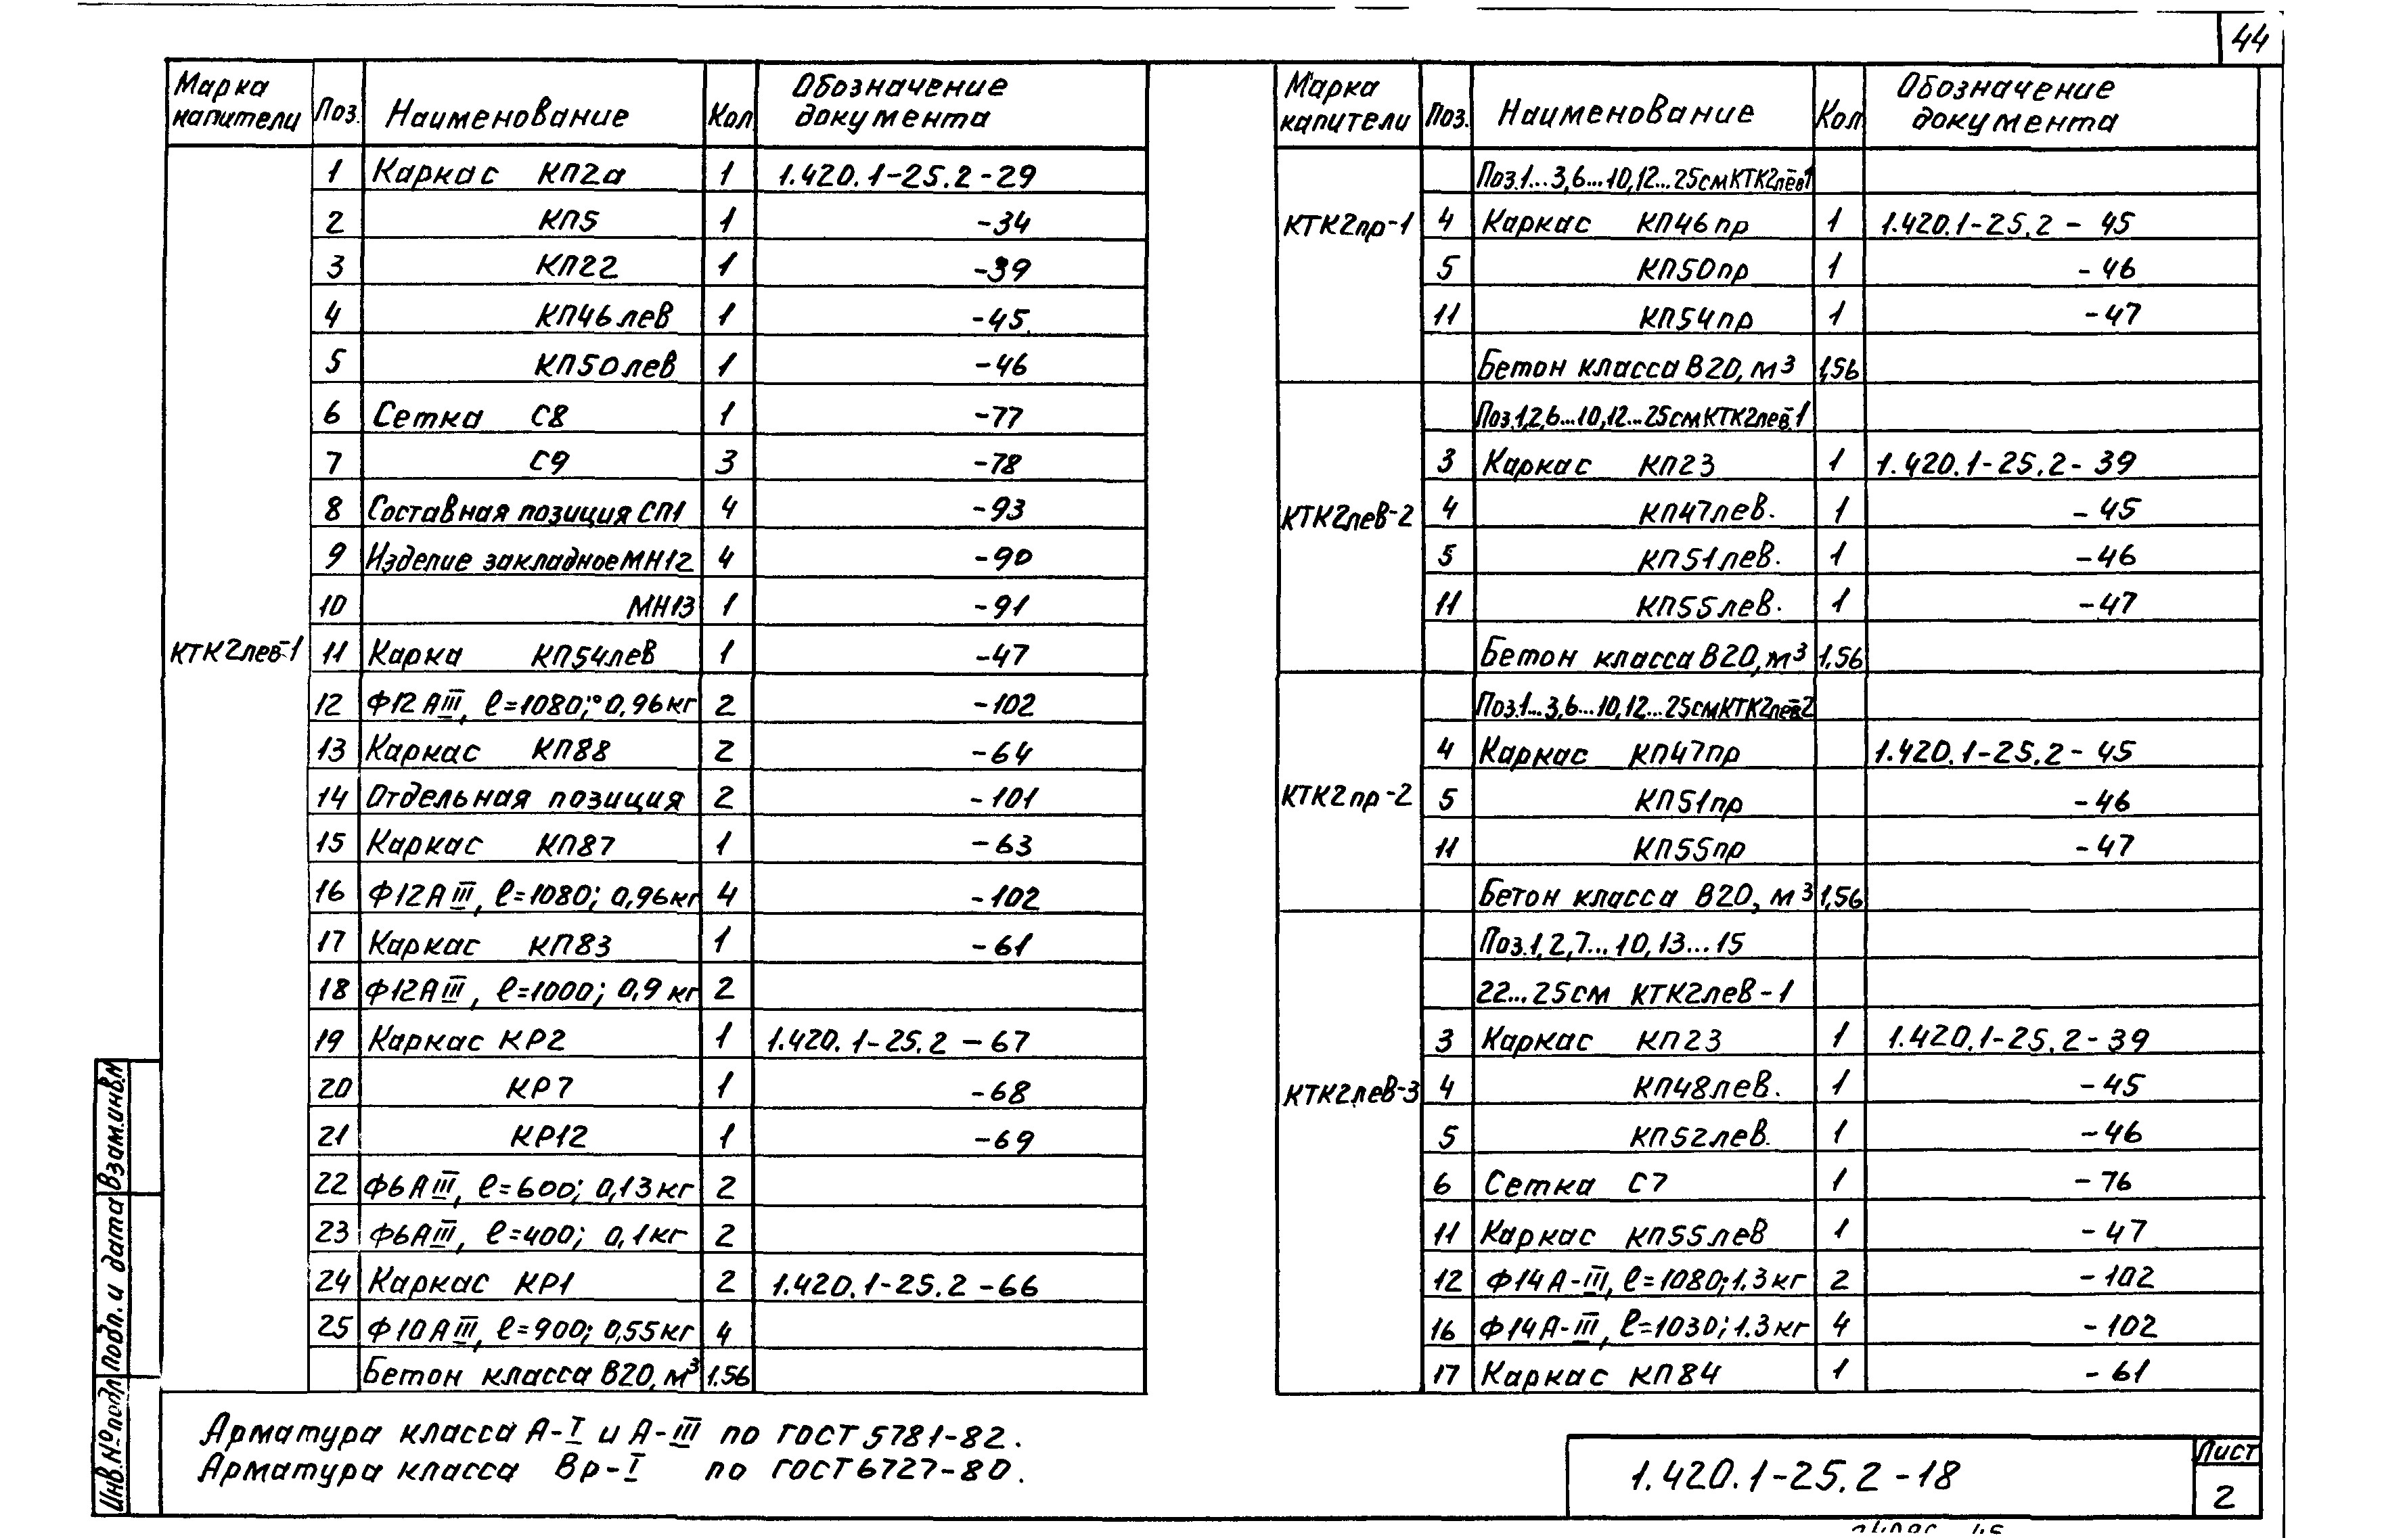 44
Марка капители Поз. Наименование Кол Обозначение документа
1 Каркас КП2а 1 1.420.1-25.2-29
2 КП5 1 -34
3 КП22 1 -39
4 КП46лев 1 -45
5 КП50лев 1 -46
6 Сетка С8 1 -77
7 С9 3 -78
8 Составная позиция СП1 4 -93
9 Изделие закладное МН12 4 -90
10 МН13 1 -91
КТК2лев-1 11 Карка КП54лев 1 -47
12 Ф12АIII, ℓ=1080; 0,96кг 2 -102
13 Каркас КП88 2 -64
14 Отдельная позиция 2 -101
15 Каркас КП87 1 -63
16 Ф12АIII, ℓ=1080; 0,96кг 4 -102
17 Каркас КП83 1 -61
18 Ф12АIII, ℓ=1000; 0,9 кг 2
19 Каркас КР2 1 1.420.1-25.2-67
20 КР7 1 -68
21 КР12 1 -69
22 Ф6АIII, ℓ=600; 0,13кг 2
23 Ф6АIII, ℓ=400; 0,1кг 2
24 Каркас КР1 2 1.420.1-25.2-66
25 Ф10АIII, ℓ=900; 0,55кг 4
Бетон класса В20, м³ 1.56
Марка капители Поз. Наименование Кол Обозначение документа
Поз.1...3,6...10,12...25см КТК2лев-1
КТК2пр-1 4 Каркас КП46пр 1 1.420.1-25.2-45
5 КП50пр 1 -46
11 КП54пр 1 -47
Бетон класса В20, м³ 1,56
Поз.1,2,6...10,12...25см КТК2лев-1
3 Каркас КП23 1 1.420.1-25.2-39
КТК2лев-2 4 КП47лев. 1 -45
5 КП51лев. 1 -46
11 КП55лев. 1 -47
Бетон класса В20, м³ 1.56
Поз.1...3,6...10,12...25см КТК2лев-2
4 Каркас КП47пр 1.420.1-25.2-45
КТК2пр-2 5 КП51пр -46
11 КП55пр -47
Бетон класса В20, м³ 1.56
Поз.1,2,7...10,13...15
22...25см КТК2лев-1
3 Каркас КП23 1 1.420.1-25.2-39
КТК2лев-3 4 КП48лев. 1 -45
5 КП52лев. 1 -46
6 Сетка С7 1 -76
11 Каркас КП55лев 1 -47
12 Ф14А-III, ℓ=1080; 1.3кг 2 -102
16 Ф14А-III, ℓ=1030; 1.3кг 4 -102
17 Каркас КП84 1 -61
Арматура класса А-I и А-III по ГОСТ 5781-82.
Арматура класса Вр-I по ГОСТ 6727-80.
Инв.№подл Подп. и дата Взам.инв.№
1.420.1-25.2-18
Лист
2